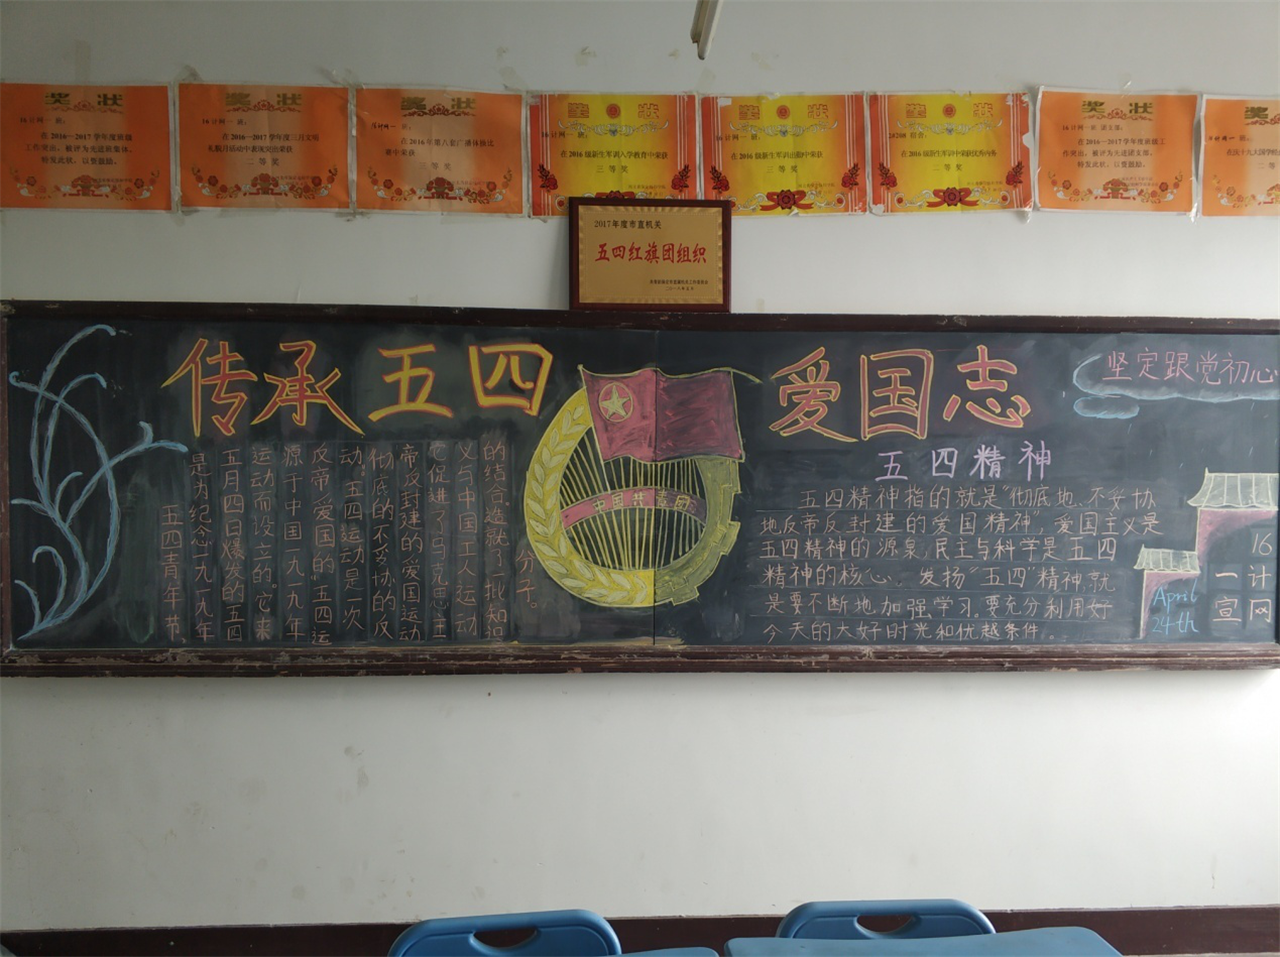 奖状
16计网一班:
在2016—2017学年度班级
工作突出,被评为先进班集体,
特发此状,以资鼓励。
奖状
16计网一班:
在2016—2017学年度三月文明
礼貌月活动中表现突出荣获
二等奖
奖状
在2016年第八套广播体操比
赛中荣获
二等奖
奖状
16计网一班:
在2016级新生军训入学教育中荣获
三等奖
奖状
16计网一班:
在2016级新生军训出操中荣获
三等奖
奖状
2#208宿舍:
在2016级新生军训中荣获优秀内务
二等奖
奖状
16计网一班团支部:
在2016—2017学年度班级工
作突出,被评为先进团支部,
特发此状,以资鼓励。
奖
2017年度市直机关
五四红旗团组织
二〇一八年五月
传承五四
爱国志
坚定跟党初心
五四青年节
是为纪念一九一九年
五月四日爆发的五四
运动而设立的。它来
源于中国一九一九年
反帝爱国的“五四运
动”五四运动是一次
彻底的不妥协的反
帝反封建的爱国运动
它促进了马克思主
义与中国工人运动
的结合造就了一批知识
分子。
中国共青团
五四精神
五四精神指的就是“彻底地、不妥协
地反帝反封建的爱国精神”。爱国主义是
五四精神的源泉,民主与科学是五四
精神的核心。发扬“五四”精神,就
是要不断地加强学习,要充分利用好
今天的大好时光和优越条件。
April
24th
16
计网
一宣